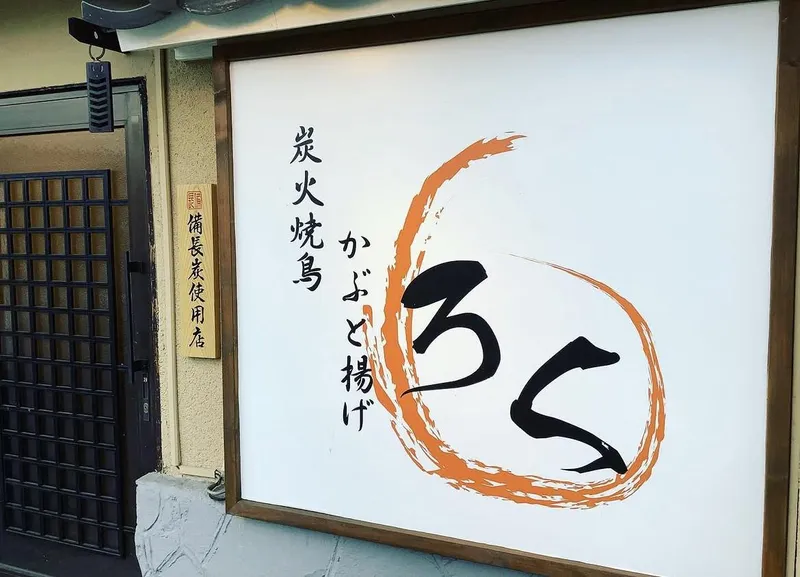 炭火焼鳥
かぶと揚げ
ろく
備長炭使用店